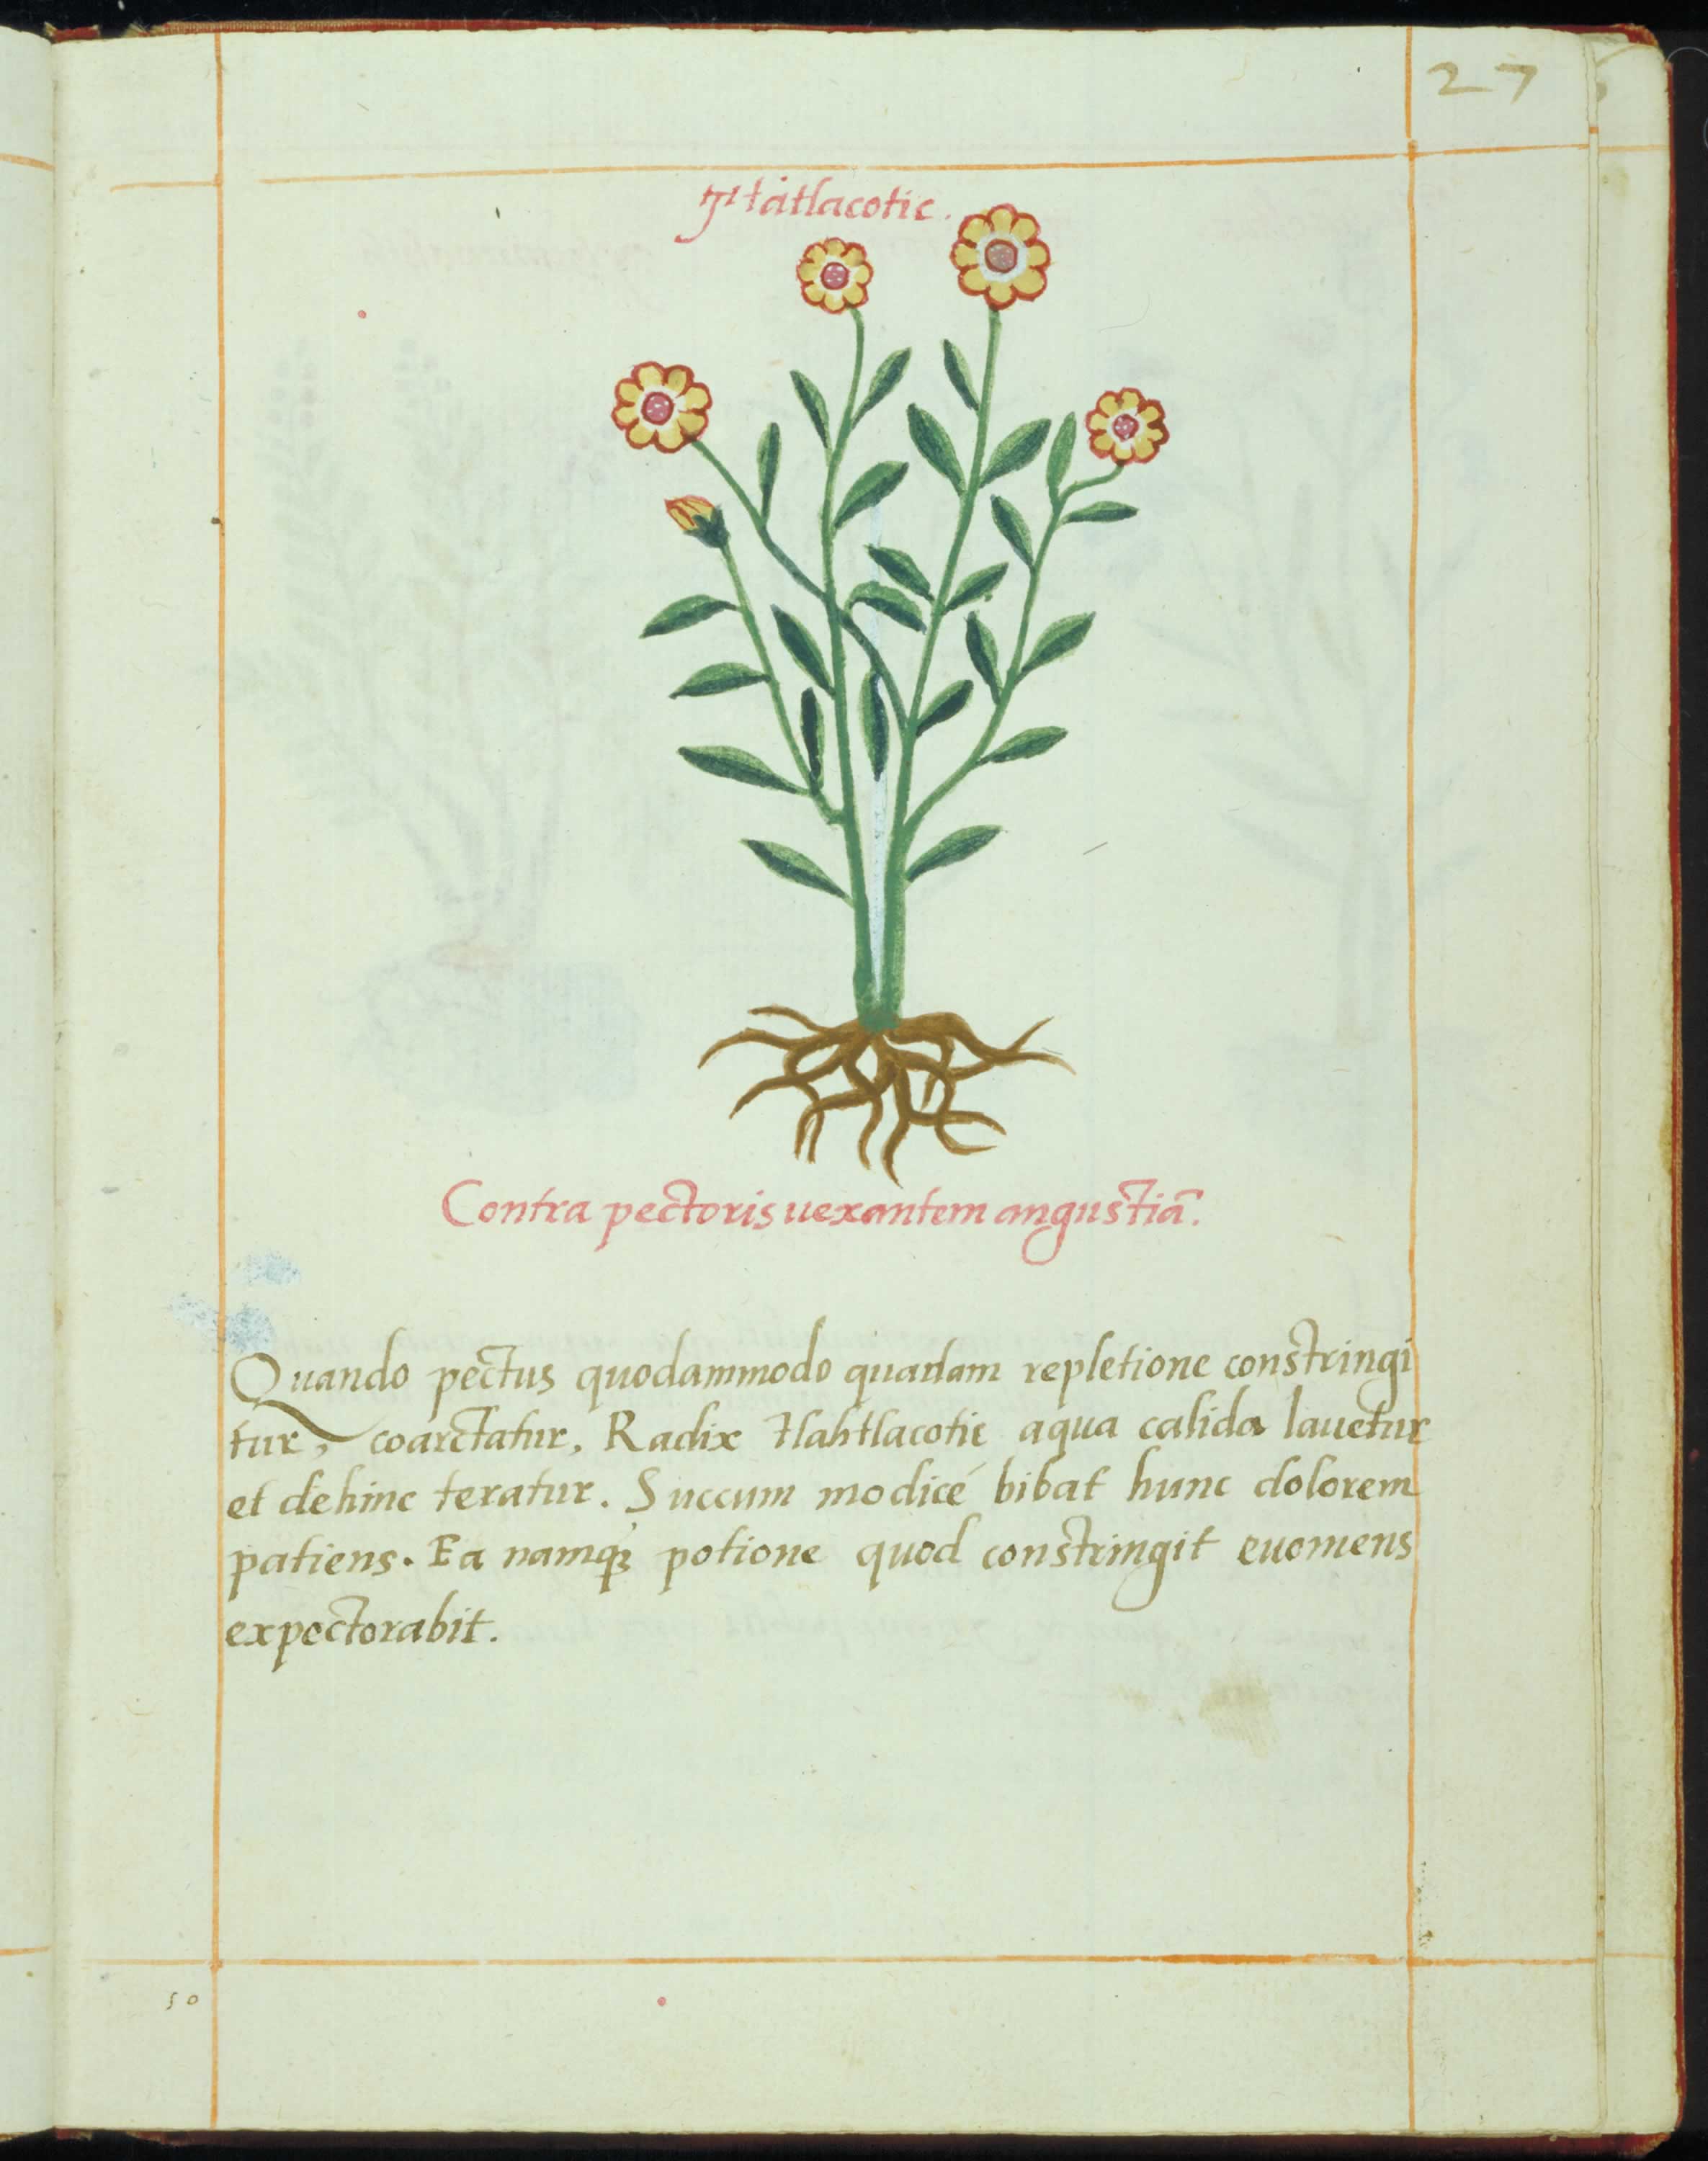 27
Tlàtlacotic.
Contra pectoris uexantem angustiã.
Quando pectus quodammodo quadam repletione constringi
tur, coarctatur, Radix tlahtlacotic aqua calida lauetur
et dehinc teratur. Succum modicé bibat hunc dolorem
patiens. Ea namq; potione quod constringit euomens
expectorabit.
50